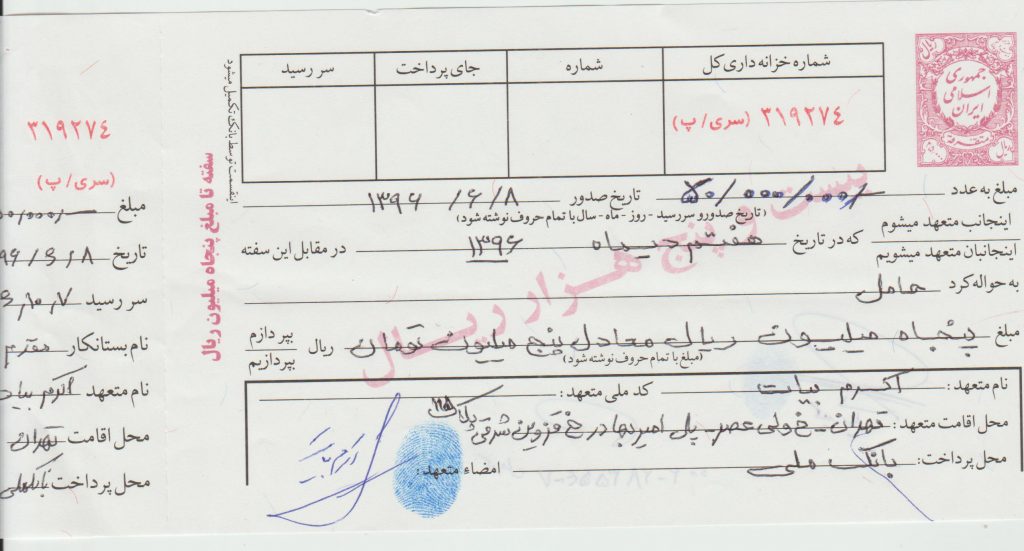 ریال
جمهوری
اسلامی
ایران
متفرقه
شماره خزانه داری کل
شماره
جای پرداخت
سر رسید
۳۱۹۲۷٤ (سری/پ)
اینقسمت توسط بانک تکمیل میشود
سفته تا مبلغ پنجاه میلیون ریال
بیست و پنج هزار ریال
مبلغ به عدد ۵۰/۰۰۰/۰۰۰/ تاریخ صدور ۱۳۹۶/۶/۸
(تاریخ صدور و سررسید - روز - ماه - سال با تمام حروف نوشته شود)
اینجانب متعهد میشوم
اینجانبان متعهد میشویم
که در تاریخ هفتم دیماه ۱۳۹۶ در مقابل این سفته
به حواله کرد حامل
مبلغ پنجاه میلیون ریال معادل پنج میلیون تومان ریال
بپردازم
بپردازیم
(مبلغ با تمام حروف نوشته شود)
نام متعهد: اکرم بیات کد ملی متعهد:
محل اقامت متعهد: تهران - خ ولی عصر - پل امیربهادر خ قزوین شرقی پلاک
محل پرداخت: بانک ملی امضاء متعهد:
۳۱۹۲۷٤
(سری/پ)
مبلغ
تاریخ ۹۶/۶/۸
سر رسید ۱۰،۷
نام بستانکار
نام متعهد اکرم بیا
محل اقامت تهران
محل پرداخت بانک ملی